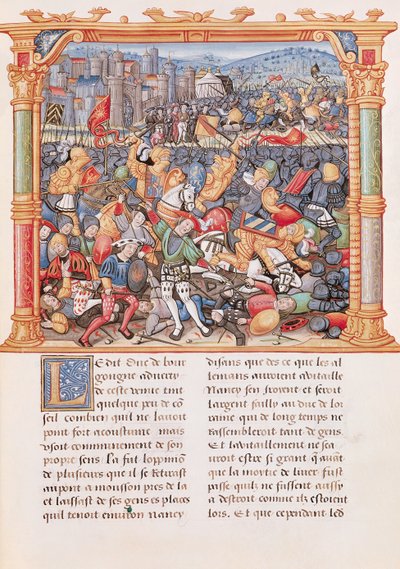 LEdit Duc de bour
gongne aduerty
de ceste venue tint
quelque peu de cō
seil combien quil ne lauoit
point fort acoustume mais
vsoit communement de son
propre sens. La fut loppiniō
de plusieurs que il se tirast
au pont a mousson pres de la
et laissast de ses gens es places
quil tenoit enuiron Nancy
disans que des ce que les al
lemans auroient auitaille
Nancy sen yroient et seroit
largent failly au duc de lor
raine qui de long temps ne
rassembleroit tant de gens.
Et lauitaillement ne sau
roit estre si grant q̄ auant
que la moytie de liuer fust
passe quilz ne fussent aussy
a destroit comme ilz estoient
lors. Et que cependant led